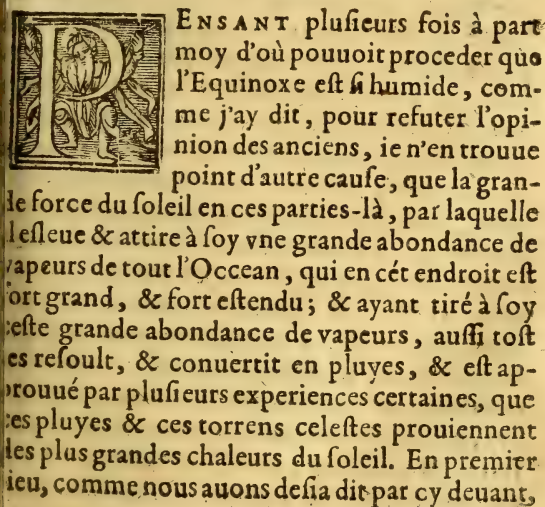 PENSANT pluſieurs fois à part
moy d'où pouuoit proceder que
l'Equinoxe eſt ſi humide, com-
me j'ay dit, pour refuter l'opi-
nion des anciens, ie n'en trouue
point d'autre cauſe, que la gran-
de force du ſoleil en ces parties-là, par laquelle
il eſleue & attire à ſoy vne grande abondance de
vapeurs de tout l'Occean, qui en cét endroit eſt
fort grand, & fort eſtendu; & ayant tiré à ſoy
ceſte grande abondance de vapeurs, auſſi toſt
les reſoult, & conuertit en pluyes, & eſt ap-
prouué par pluſieurs experiences certaines, que
ces pluyes & ces torrens celeſtes prouiennent
des plus grandes chaleurs du ſoleil. En premier
lieu, comme nous auons deſia dit par cy deuant,